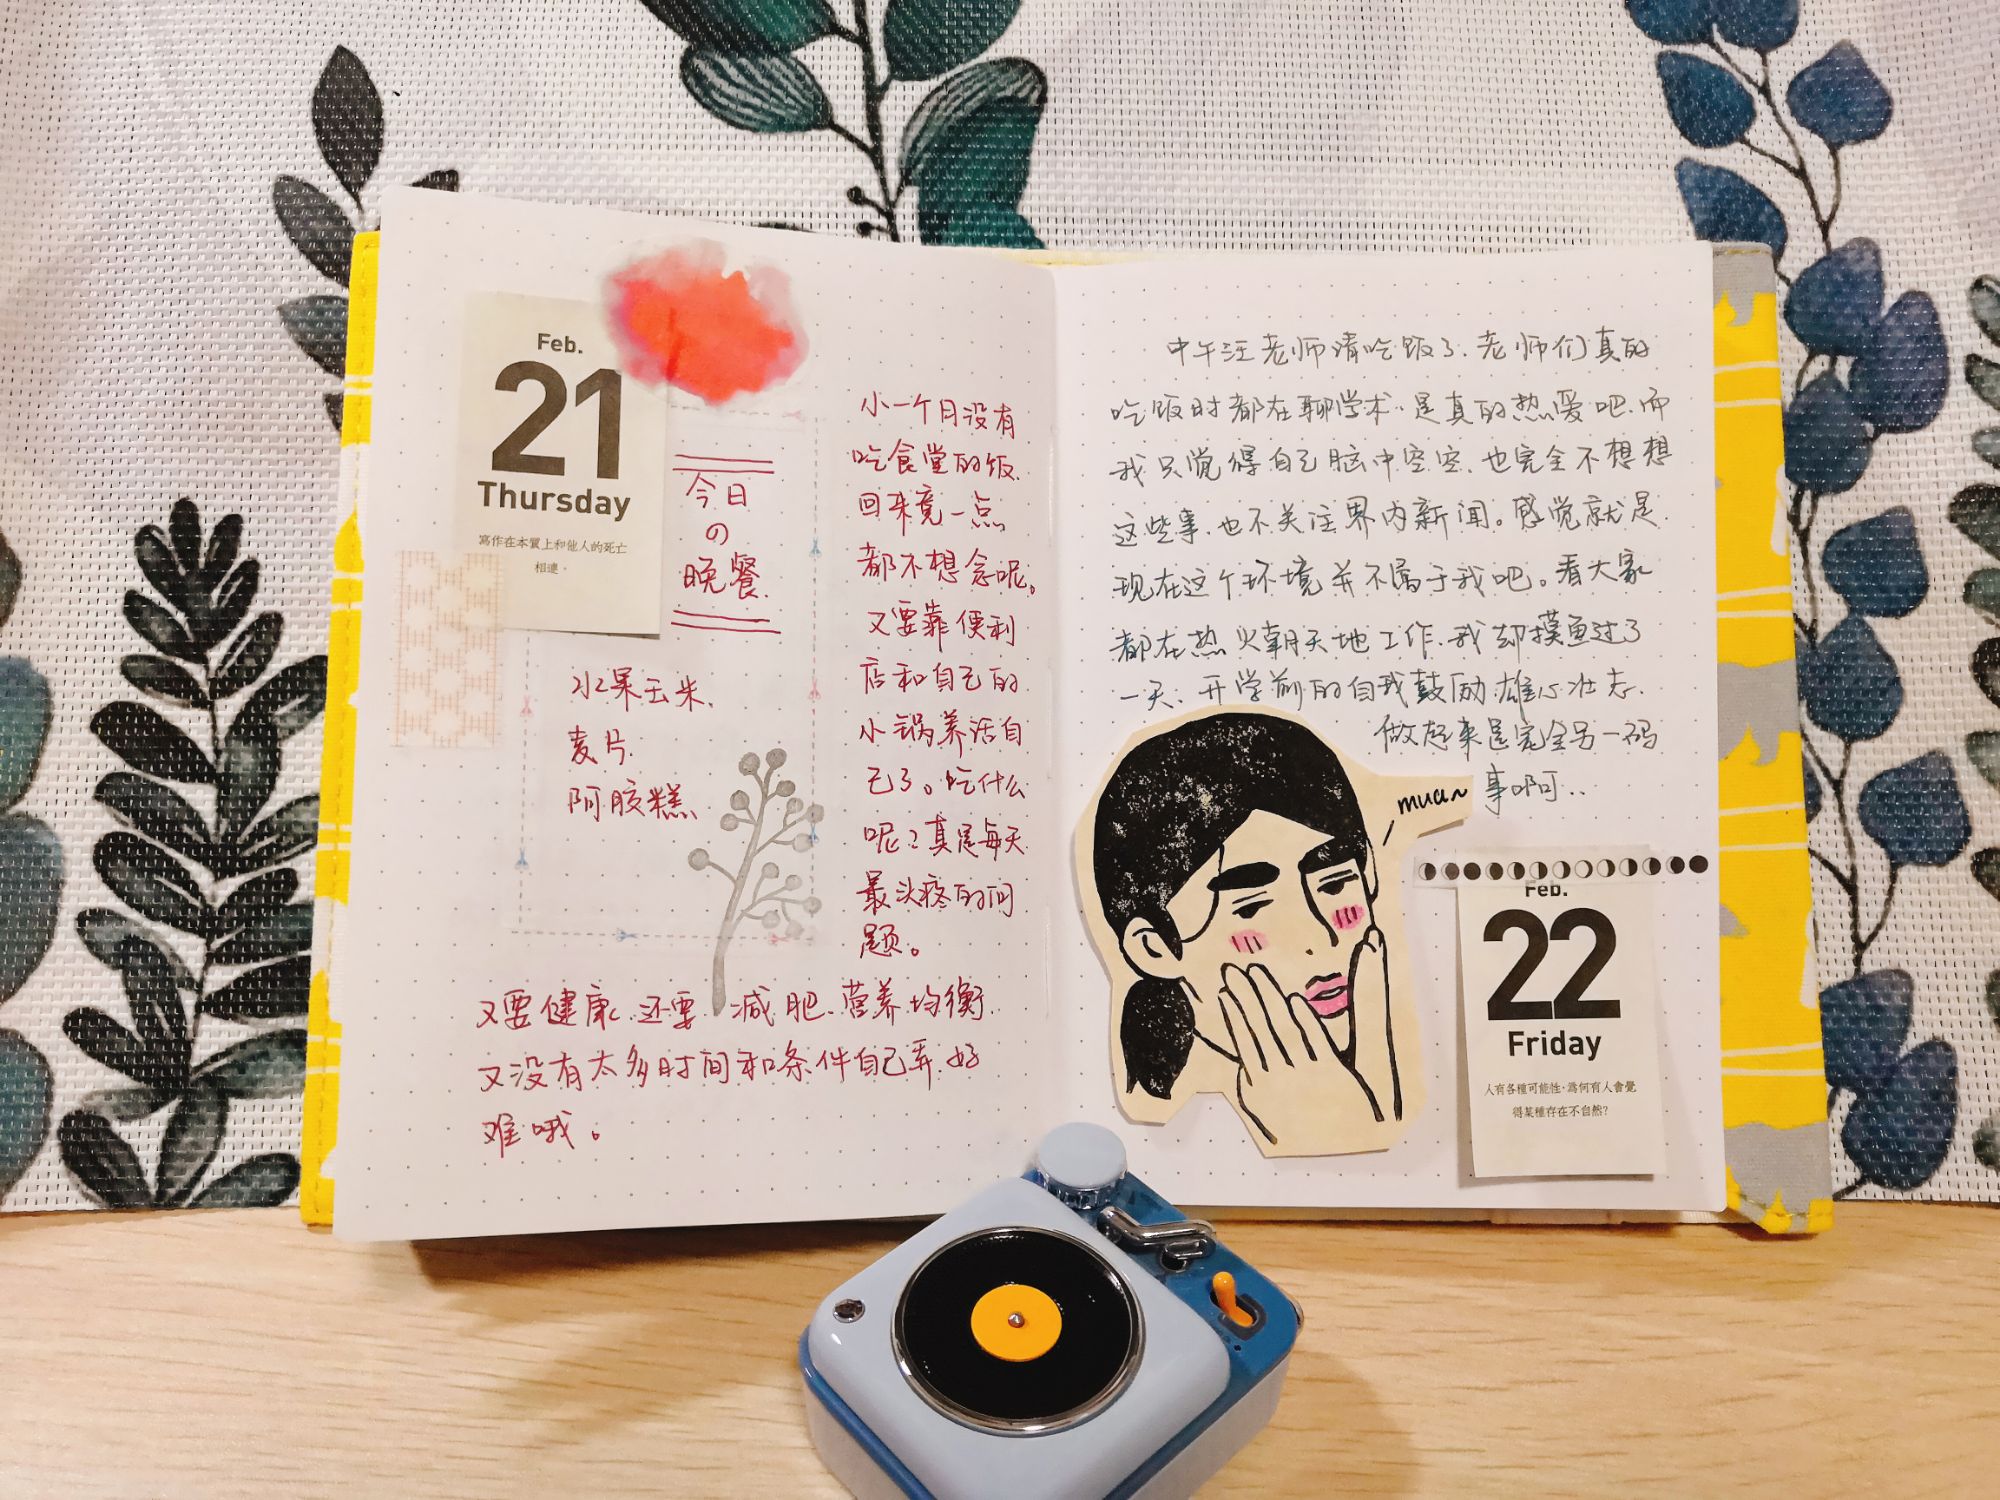 Feb.
21
Thursday
寫作在本質上和他人的死亡
相連。
今日
の
晚餐.
水果玉米.
麦片.
阿胶糕.
小一个月没有
吃食堂的饭.
回来竟一点
都不想念呢。
又要靠便利
店和自己的
小锅养活自
己了。吃什么
呢？真是每天
最头疼的问
题。
又要健康.还要减肥.营养均衡.
又没有太多时间和条件自己弄.好
难哦。
中午汪老师请吃饭了.老师们真的
吃饭时都在聊学术.是真的热爱吧.而
我只觉得自己脑中空空.也完全不想想
这些事.也不关注界内新闻。感觉就是.
现在这个环境并不属于我吧。看大家
都在热火朝天地工作.我却摸鱼过了
一天.开学前的自我鼓励.雄心壮志.
做起来是完全另一码
事啊..
mua~
Feb.
22
Friday
人有各種可能性，為何有人會覺
得某種存在不自然？